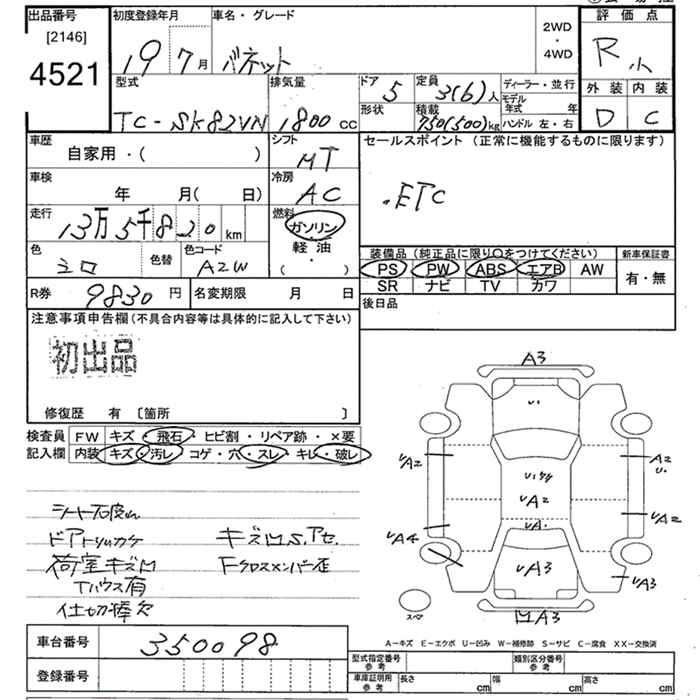 出品番号
[2146]
4521
初度登録年月
19 7 月
車名・グレード
バネット
2WD
・
4WD
評価点
R
外装 内装
D C
型式
TC-SK82VN
排気量
1800 cc
ドア
5
形状
定員
3(6)人
積載
750(500)kg
ディーラー・並行
モデル年式 年
ハンドル 左・右
車歴
自家用・( )
シフト
MT
セールスポイント (正常に機能するものに限ります)
.ETC
車検
年 月( 日)
冷房
AC
走行
13万5千820 km
燃料
ガソリン
軽油
( ・ )
色
シロ
色替
色コード
AZW
装備品(純正品に限り○をつけてください)
PS PW ABS エアB AW
SR ナビ TV カワ
新車保証書
有・無
R券 9830 円
名変期限 月 日
後日品
注意事項申告欄(不具合内容等は具体的に記入して下さい)
初出品
修復歴 有 [箇所 ]
検査員
記入欄
FW キズ・飛石・ヒビ割・リペア跡・×要
内装 キズ・汚レ・コゲ・穴・スレ・キレ・破レ
ドアトリムカケ
キズ凹S.アセ.
荷室キズ凹
Fクロスメンバー歪
Tハウス有
仕切棒欠
A3
U.
UA2
A2
U.
UA2
UA.
UA2
UA4
UA3
UA3
スペア
凹A3
A-キズ E-エクボ U-凹み W-補修跡 S-サビ C-腐食 XX-交換済
車台番号 350098
登録番号
型式指定番号
参考
類別区分番号
参考
車庫証明用
参考
長さ cm 幅 cm 高さ cm